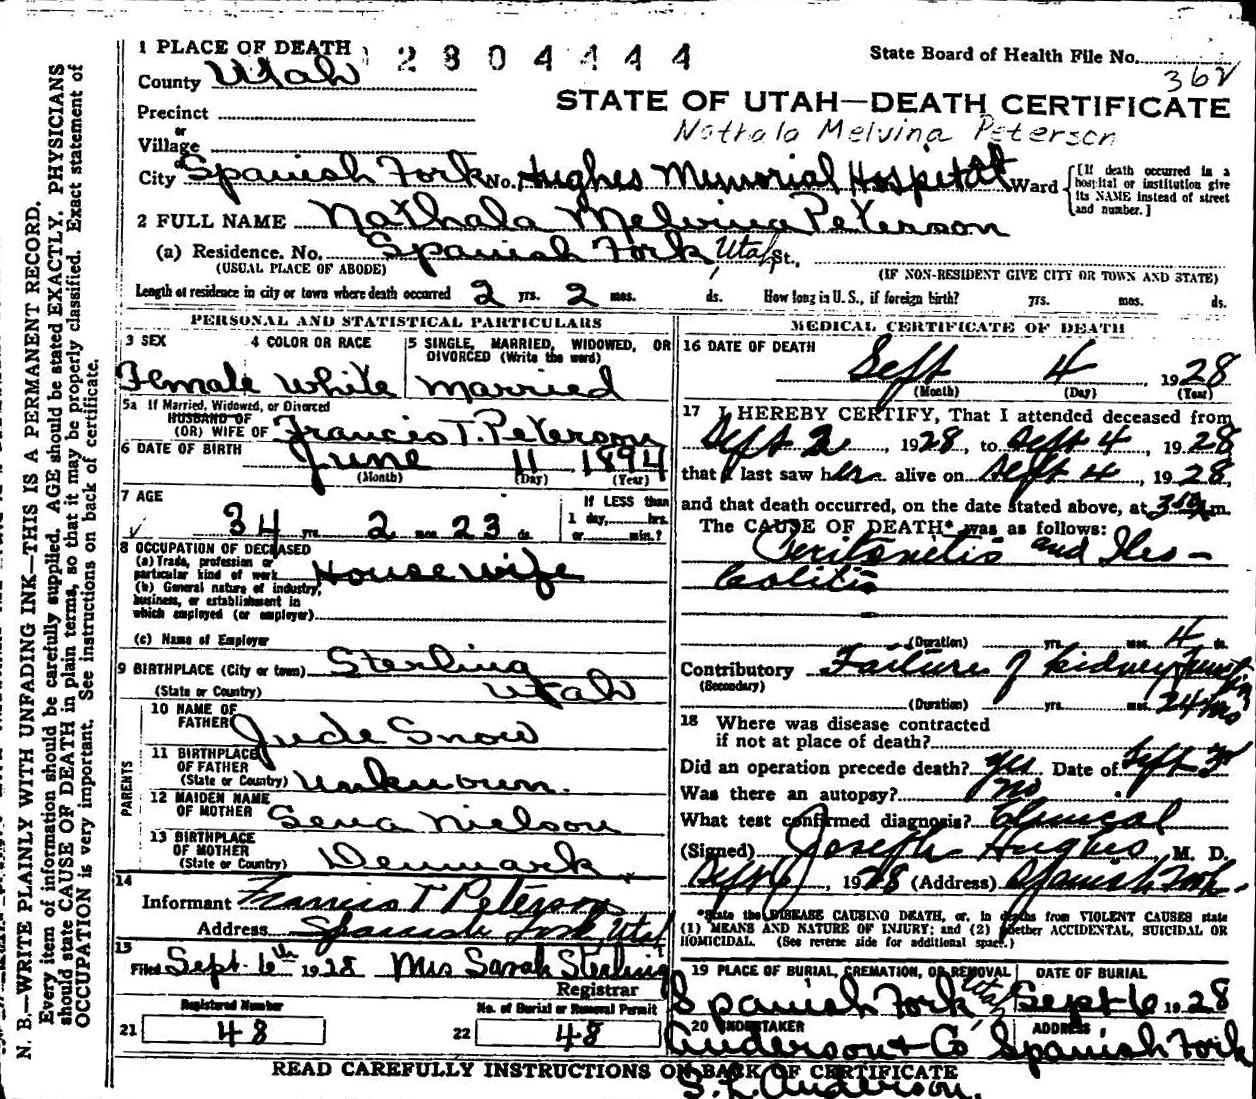 1 PLACE OF DEATH 2 8 0 4 4 4 4
State Board of Health File No.
County Utah
362
STATE OF UTAH—DEATH CERTIFICATE
Precinct
Nathala Melvina Peterson
or
Village
City Spanish Fork No. Hughes Memorial Hospital Ward
[If death occurred in a hospital or institution give its NAME instead of street and number.]
2 FULL NAME Nathala Melvina Peterson
(a) Residence. No. Spanish Fork Utah St.,
(USUAL PLACE OF ABODE) (IF NON-RESIDENT GIVE CITY OR TOWN AND STATE)
Length of residence in city or town where death occurred 2 yrs. 2 mos. ds. How long in U. S., if foreign birth? yrs. mos. ds.
PERSONAL AND STATISTICAL PARTICULARS
3 SEX 4 COLOR OR RACE 5 SINGLE, MARRIED, WIDOWED, OR DIVORCED (Write the word)
Female White Married
5a If Married, Widowed, or Divorced
HUSBAND OF
(OR) WIFE OF Francis T. Peterson
6 DATE OF BIRTH June 11 1894
(Month) (Day) (Year)
7 AGE
If LESS than
34 yrs. 2 mos. 23 ds.
1 day, hrs.
or min.?
8 OCCUPATION OF DECEASED
(a) Trade, profession or
particular kind of work House wife
(b) General nature of industry,
business, or establishment in
which employed (or employer)
(c) Name of Employer
9 BIRTHPLACE (City or town) Sterling
(State or Country) Utah
PARENTS
10 NAME OF
FATHER Jude Snow
11 BIRTHPLACE
OF FATHER
(State or Country) Unknown.
12 MAIDEN NAME
OF MOTHER Sena Nielson
13 BIRTHPLACE
OF MOTHER
(State or Country) Denmark
14
Informant Francis T Peterson
Address Spanish Fork, Utah
15
Filed Sept. 6th 1928 Mrs Sarah Sterling
Registrar
Registered Number No. of Burial or Removal Permit
21 48 22 48
MEDICAL CERTIFICATE OF DEATH
16 DATE OF DEATH
Sept 4, 1928
(Month) (Day) (Year)
17 I HEREBY CERTIFY, That I attended deceased from
Sept 2, 1928, to Sept 4, 1928
that I last saw her alive on Sept 4, 1928,
and that death occurred, on the date stated above, at m.
The CAUSE OF DEATH* was as follows:
Peritonitis and Ileo-
Colitis
(Duration) yrs. mos. 4 ds.
Contributory Failure of kidney function
(Secondary)
(Duration) yrs. mos. 24 hrs
18 Where was disease contracted
if not at place of death?
Did an operation precede death? Yes Date of Sept 3rd
Was there an autopsy? No
What test confirmed diagnosis? Clinical
(Signed) Joseph Hughes, M. D.
Sept 6, 1928 (Address) Spanish Fork
*State the DISEASE CAUSING DEATH, or, in deaths from VIOLENT CAUSES state
(1) MEANS AND NATURE OF INJURY; and (2) whether ACCIDENTAL, SUICIDAL OR
HOMICIDAL. (See reverse side for additional space.)
19 PLACE OF BURIAL, CREMATION, OR REMOVAL DATE OF BURIAL
Spanish Fork Utah Sept 6 1928
20 UNDERTAKER ADDRESS
Anderson & Co Spanish Fork
S. L. Anderson.
READ CAREFULLY INSTRUCTIONS ON BACK OF CERTIFICATE
N. B.—WRITE PLAINLY WITH UNFADING INK—THIS IS A PERMANENT RECORD.
Every item of information should be carefully supplied. AGE should be stated EXACTLY. PHYSICIANS
should state CAUSE OF DEATH in plain terms, so that it may be properly classified. Exact statement of
OCCUPATION is very important. See instructions on back of certificate.